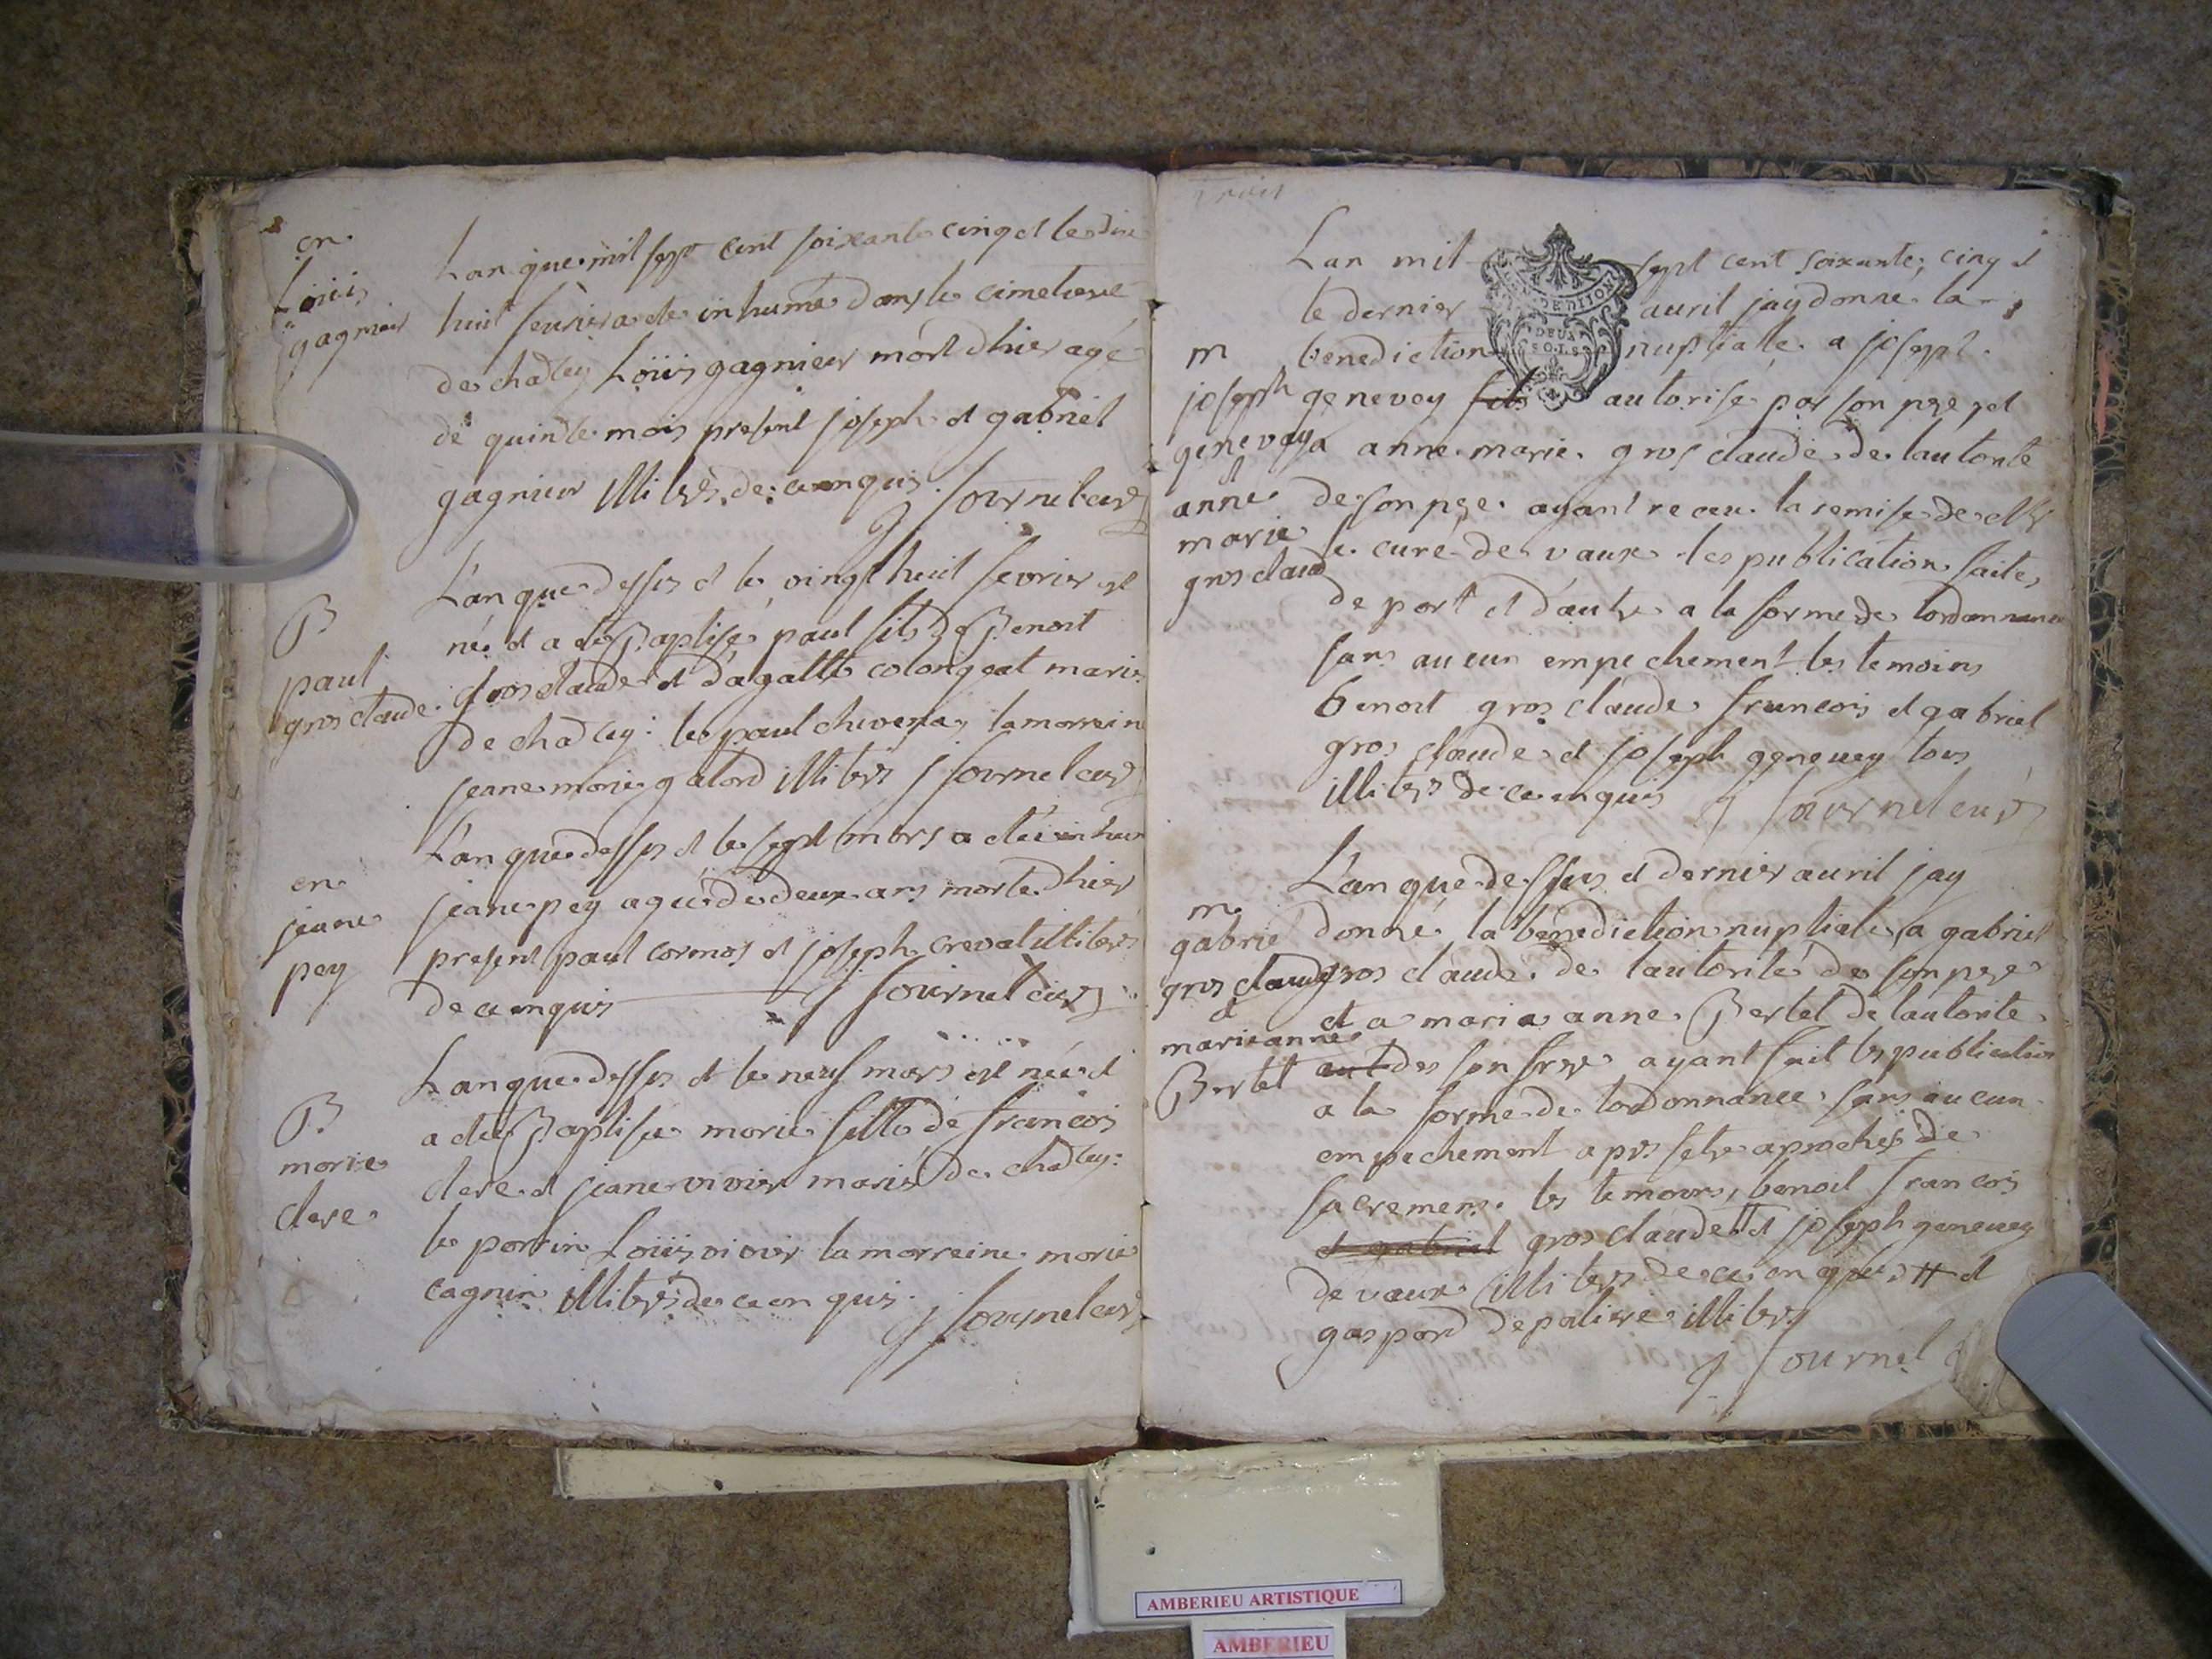 en
Loüis
gagnieur
Lan que mil sept cent soixante cinq et le dix
huit feuvrier a eté inhumé dans le cimetierre
de chadley Loüis gagnieur mort dhier agé
de quinze mois present joseph et gabriel
gagnieur illiterés de ce enquis
j fournel curé
B
paul
gros claude
L'an que dessus et le vingt huit fevrier est
né et a eté Baptisé paul fils de Benoit
gros claude et d'agatte colongeat mariés
de chadley le paul chivera la marrein
jeane marie galard illiterés j fournel curé
en
jeane
pey
L'an que dessus et le sept mars a eté inhum
jeane pey ageé de deux ans morte dhier
present paul cormos et joseph crevat illiterés
de ce enquis j fournel curé
B
marie
clere
Lan que dessus et le neuf mars est née et
a eté Baptisée marie fille de francois
clere et jeane vivier mariés de chadley
le parrin Loüis vivier la marreine marie
cagnin illiterés de ce en quis
j fournel curé
Trois
Lan mil sept cent soixante cinq et
le dernier auril jay donné la
benediction nuptialle a joseph
DEUX
SOLS
m
joseph
genevay
et
anne
marie
gros claud
genevey fils autorisé par son pere et
a anne marie gros claude de lautorité
de son pere ayant receu la remise de
le curé de vaux les publication faites
de part et d'autre a la forme de lordonnance
sans aucun empechement les temoins
benoit gros claude francois et gabriel
gros claude et joseph geneuey tous
illiterés de ce enquis j fournel curé
m
gabriel
gros claude
et
marieanne
Bertet
L'an que dessus et dernier auril jay
donné la bénédiction nuptiale a gabriel
gros claude de lautorité de son pere
et a maria anne Bertet de lautorité
de son frere ayant fait les publication
a la forme de lordonnance sans aucun
empechement apres setre aprochés de
sacremens les temoins benoit francois
et gabriel gros claude et joseph geneuey
de vaux illiterés de ce en quis # et
gaspard depaliere illiteré
j fournel
AMBERIEU ARTISTIQUE
AMBERIEU